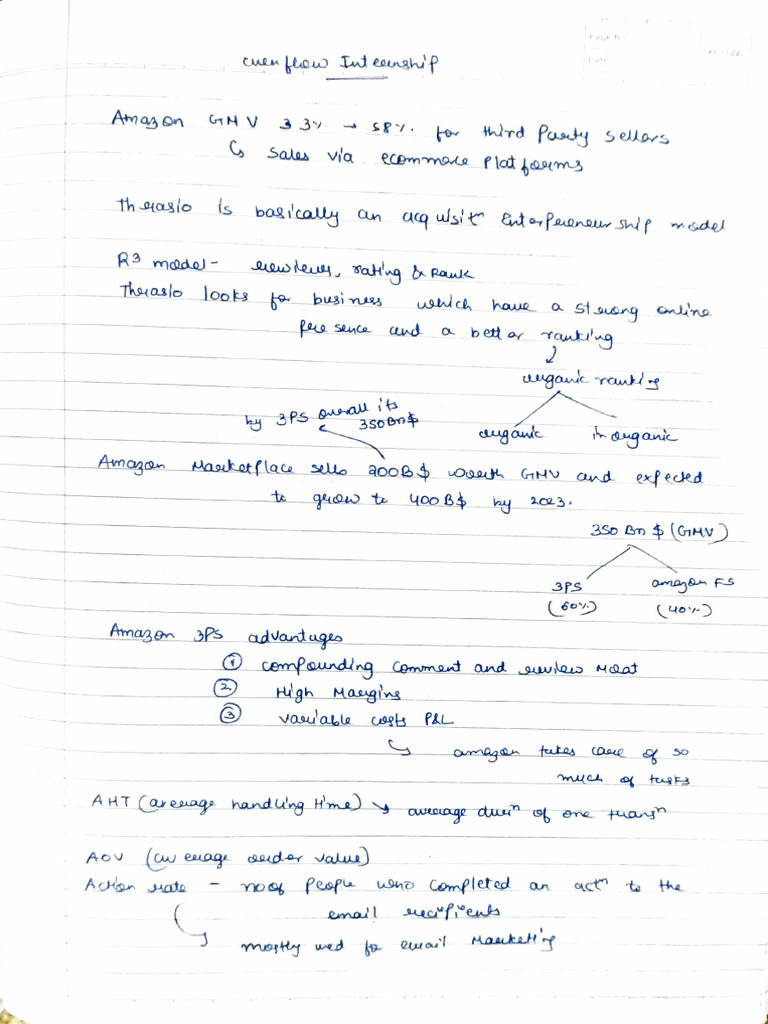 Internship
Amazon GMV 33% → 58% for third Party sellers
↳ Sales via ecommerce Platforms
Therasio is basically an acquisitⁿ Enterpreneurship model
R³ model - reviews, rating & Rank
Therasio looks for business which have a strong online
presence and a better ranking
organic ranking
by 3PS overall its
350Bn$
organic inorganic
Amazon Marketplace sells 200B$ worth GMV and expected
to grow to 400B$ by 2023.
350 Bn $ (GMV)
3PS amazon FS
(60%) (40%)
Amazon 3PS advantages
① Compounding comment and review Moat
② High Margins
③ variable costs P&L
↳ amazon takes care of so
much of tasks
AHT (average handling time) ↘ average durⁿ of one transⁿ
AOV (average order value)
Action rate - no of People who completed an actⁿ to the
email recipients
↳ mostly used for email Marketing